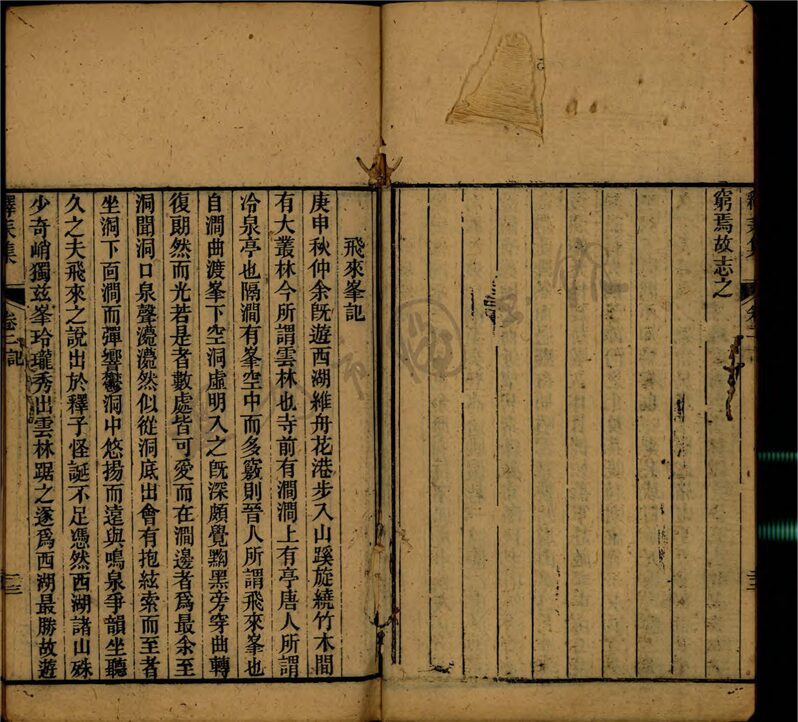 窮焉故志之
飛來峯記
庚申秋仲余既遊西湖維舟花港步入山蹊旋繞竹木間
有大叢林今所謂雲林也寺前有澗澗上有亭唐人所謂
冷泉亭也隔澗有峯空中而多竅則晉人所謂飛來峯也
自澗曲渡峯下空洞虛明入之既深頗覺黝黑旁穿曲轉
復朗然而光若是者數處皆可愛而在澗邊者爲最余至
洞聞洞口泉聲㶁㶁然似從洞底出會有抱絃索而至者
坐洞下面澗而彈響鬱洞中悠揚而遠與鳴泉爭韻坐聽
久之夫飛來之說出於釋子怪誕不足憑然西湖諸山殊
少奇峭獨茲峯玲瓏秀出雲林踞之遂爲西湖最勝故遊
集
卷二記